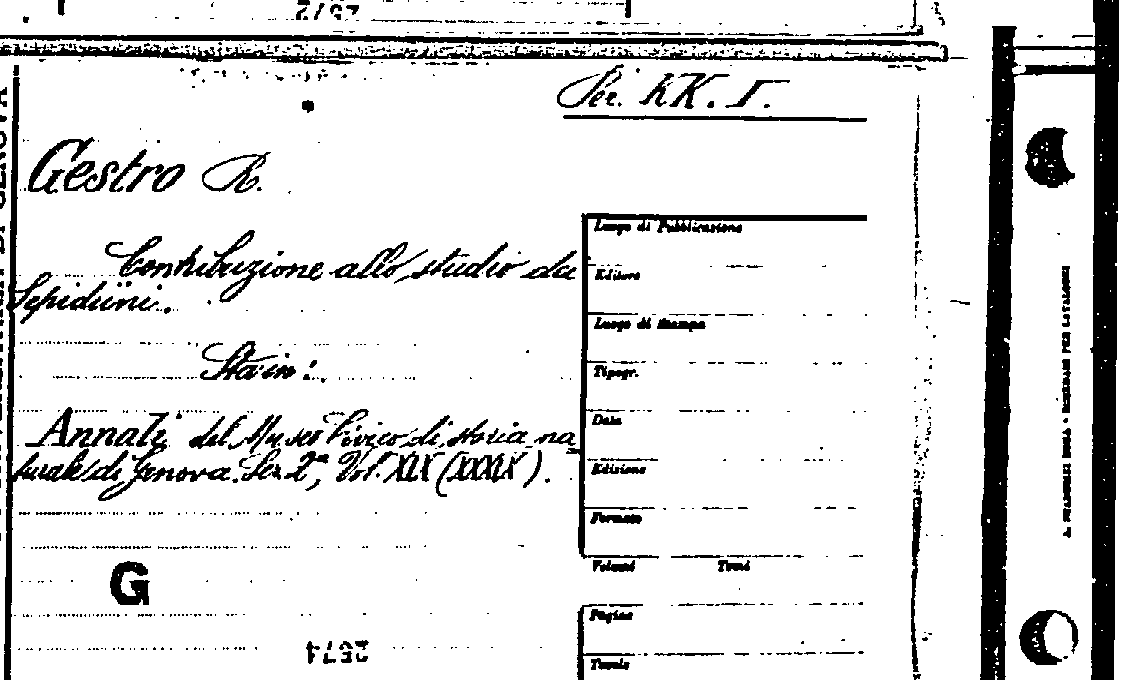 2572
Per. KK. I.
Gestro R.
Contribuzione allo studio dei
Ispidiini.
Sta in:
Annali del Museo Civico di storia na
turale di Genova. Ser. 2ª, Vol. XIX (XXXIX).
G
2574
Luogo di Pubblicazione
Editore
Luogo di Stampa
Tipogr.
Data
Edizione
Formato
Volumi Tomi
Pagine
Tavole
DI GENOVA